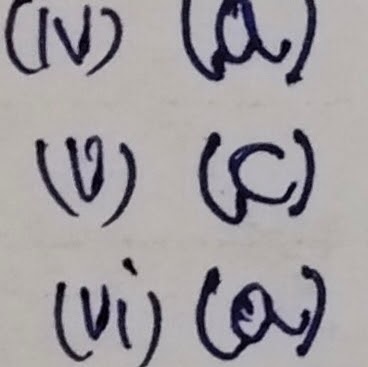 (iv) (a)
(v) (c)
(vi) (a)